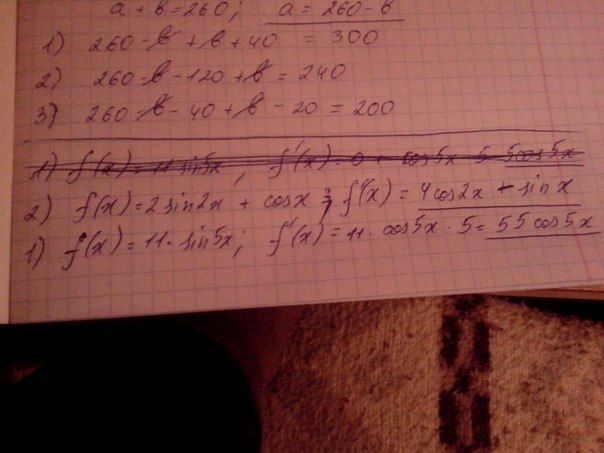 a + b = 260; a = 260 - b
1) 260 - b + b + 40 = 300
2) 260 - b - 120 + b = 240
3) 260 - b - 40 + b - 20 = 200
1) f(x) = 11 sin5x; f'(x) = 0 + cos5x · 5 = 5cos5x
2) f(x) = 2 sin2x + cosx; f'(x) = 4cos2x + sin x
1) f(x) = 11 · sin5x; f'(x) = 11 · cos5x · 5 = 55cos5x